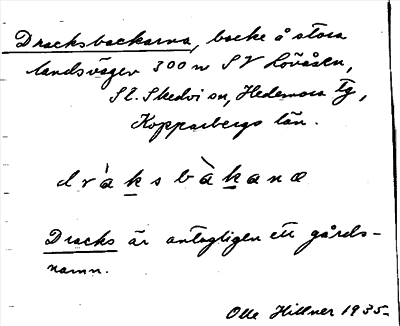 Dracksbackarna, backe å stora
landsvägen 300 m SV Lövåsen,
St. Skedvi sn, Hedemora tg,
Kopparbergs län.
dràksbàkanæ
Dracks är antagligen ett gårds-
namn.
Olle Hillner 1935.